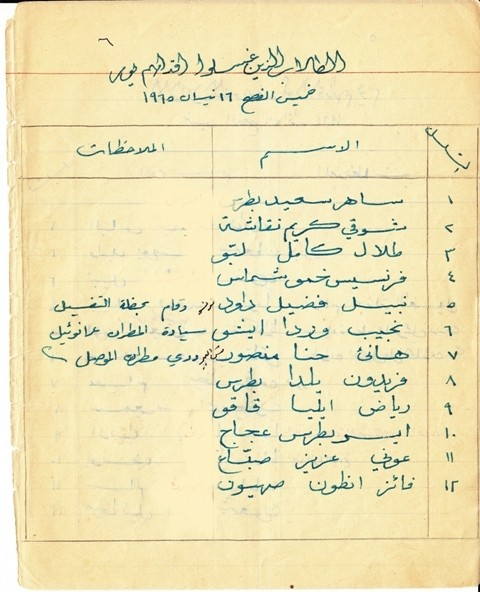 ٦
الطلاب الذين غسلوا اقدامهم يوم
خميس الفصح ١٦ نيسان ١٩٦٥
تسلسل الاسم الملاحظات
١ ساهر سعيد بطرس
٢ شوقي كريم نقاشة
٣ طلال كامل
٤ فرنسيس خمو شماس
٥ نبيل فضيل داود وقام بحفلة التغسيل
٦ نجيب وردا ايشو سيادة المطران عمانوئيل
٧ هاني حنا منصور مطران الموصل
٨ فريدون يلدا بطرس
٩ رياض ايليا قاقو
١٠ بطرس عجاج
١١ عوني عزيز صباغ
١٢ فائز انطون صهيون